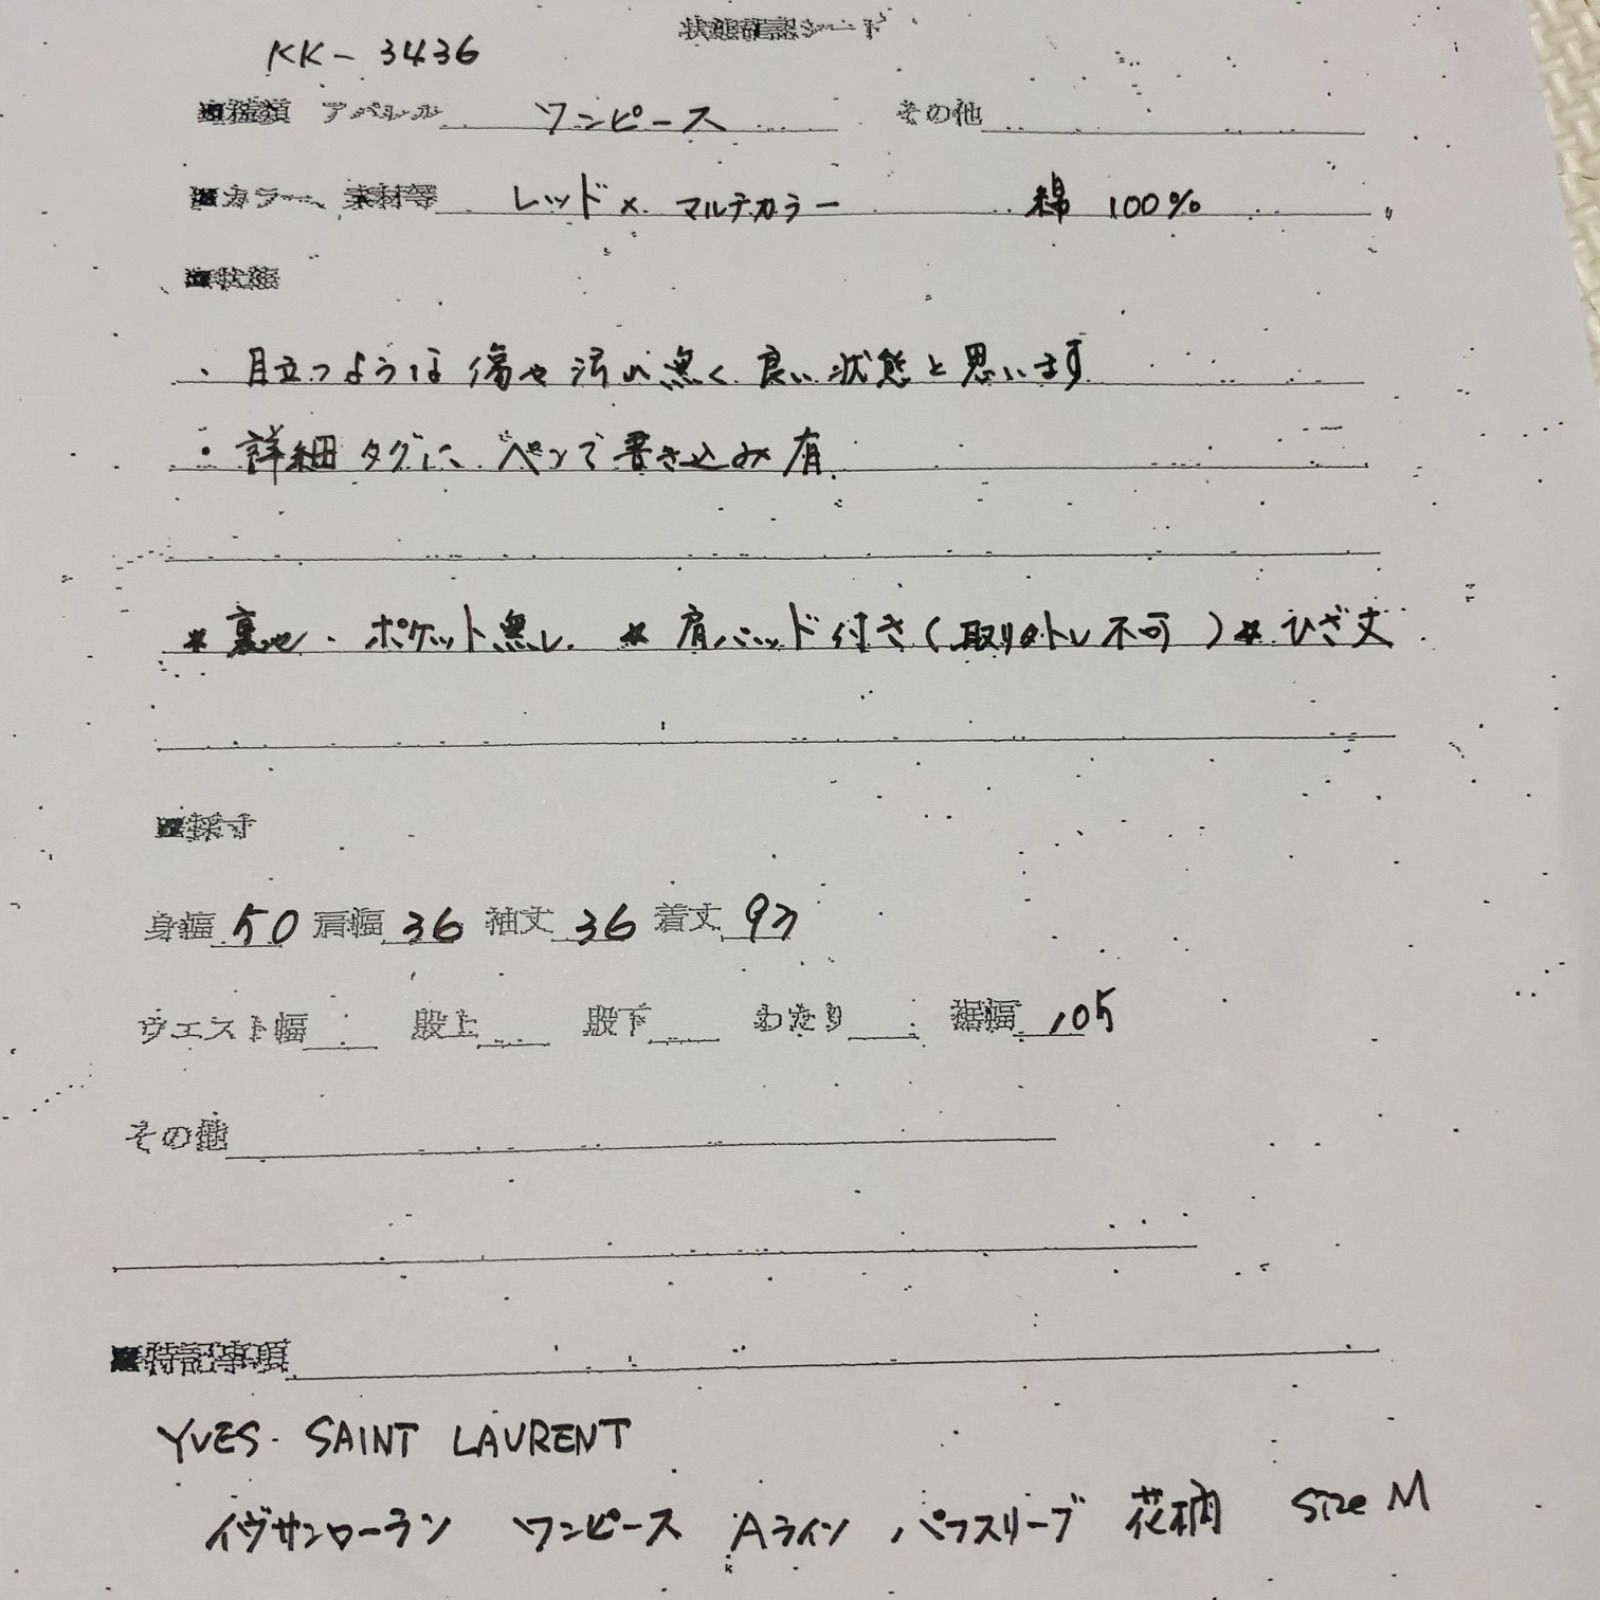 状態確認シート
KK-3436
■種類 アパレル ワンピース その他
■カラー、素材等 レッド×マルチカラー 綿 100%
■状態
・目立つような傷や汚れ無く良い状態と思います
・詳細タグに ペンで書き込み有
*裏地・ポケット無し *肩パッド付き(取り外し不可)*ひざ丈
■採寸
身幅 50 肩幅 36 袖丈 36 着丈 97
ウエスト幅 股上 股下 わたり 裾幅 105
その他
■特記事項
YVES SAINT LAURENT
イヴサンローラン ワンピース Aライン パフスリーブ 花柄 size M